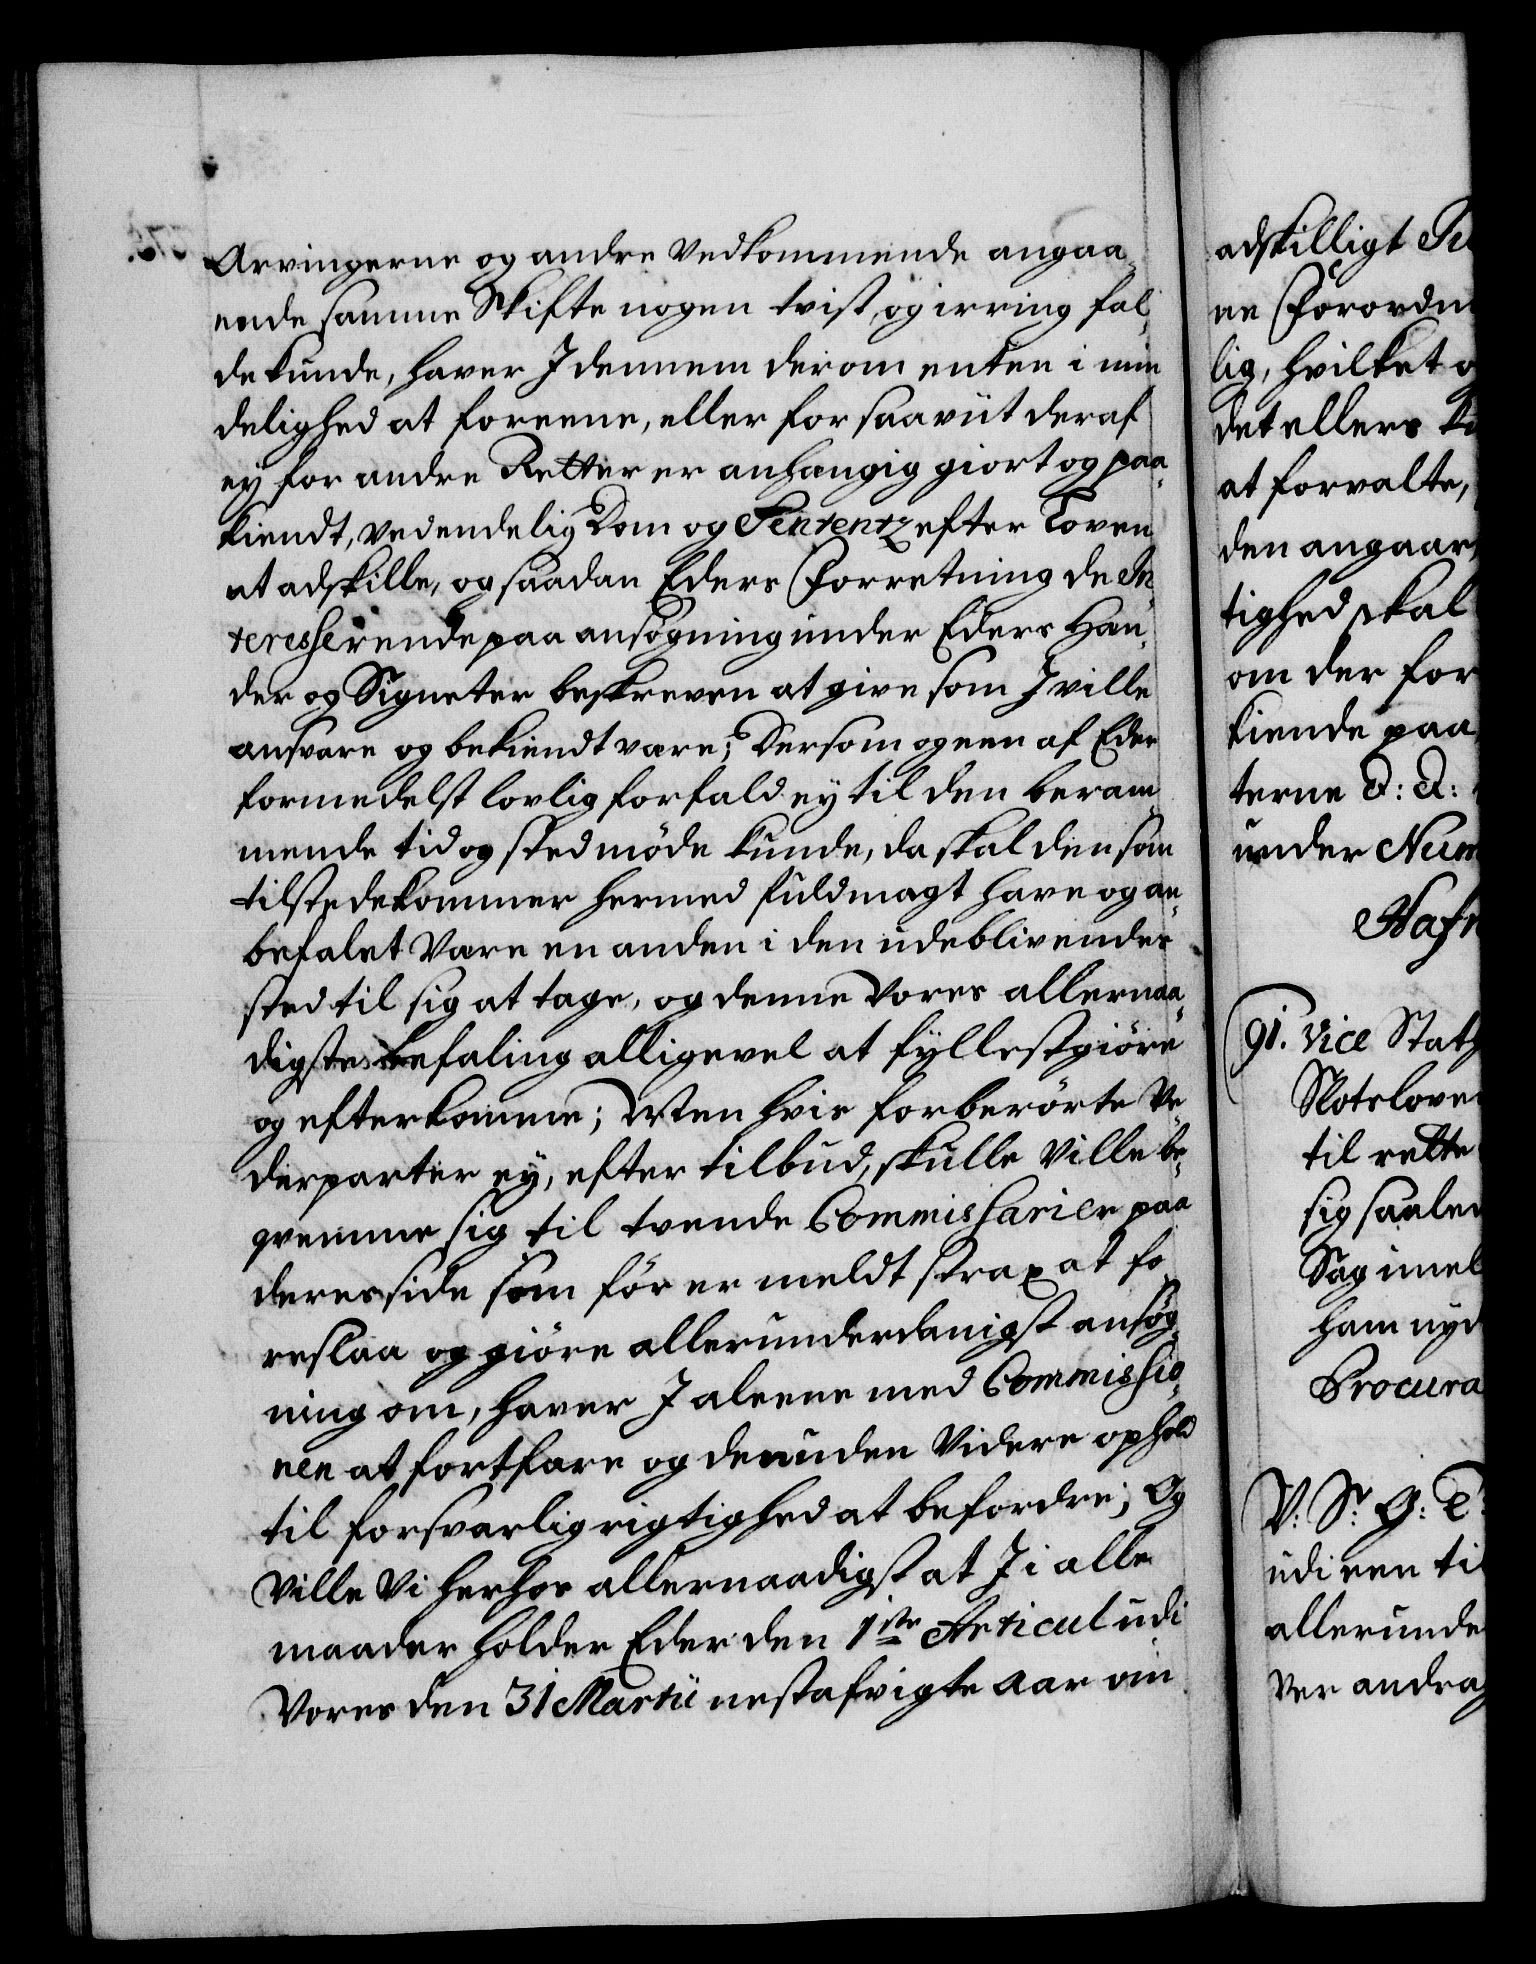 Arvingerne og andre Vedkommende angaa-
ende samme Skifte nogen tvist og irring fal-
de kunde, haver I dennem derom enten i min-
delighed at foreene, eller for saavüt deraf
ey for andre Retter er anhængig giort og paa-
kiendt, ved endelig Dom og Sententz efter Loven
at adskille, og saadan Eders Forretning de In-
teresserende paa ansøgning under Eders Hæn-
der og Signeter beskreven at give som I ville
ansvare og bekiendt være; Dersom og een af Eder
formedelst lovlig forfald ey til den beram-
mende tid og sted møde kunde, da skal den som
tilstedekommer hermed fuldmagt have og an-
befalet være en anden i den udeblivendes
sted til sig at tage, og denne Vores allernaa-
digste befaling alligevel at fyllestgiøre
og efterkomme; Men hvis forberørte Ve-
derparter ey, efter tilbud, skulle ville be-
qvemme sig til tvende Commissarier paa
deres side som før er meldt strax at fo-
reslaa og giøre allerunderdanigst ansøg-
ning om, haver I aleene med Commissio-
nen at fortfare og den uden videre ophold
til forsvarlig rigtighed at befordre; Og
Ville Vi herhos allernaadigst at I i alle
maader holder Eder den 1ste Articul udi
Vores den 31 Martii nestafvigte Aar om
adskilligt
ne Forordn
lig, hvilket
det ellers
at forvalte,
den angaar,
tighed skal
om der for
kiende paa
terne d: d:
under Num
Hafn
91. Vice Stath
Slotslove
til rette
sig saale
Sag imel
ham nyd
Procura
V: Sr: G: T:
udi een til
allerunde
ver andrag